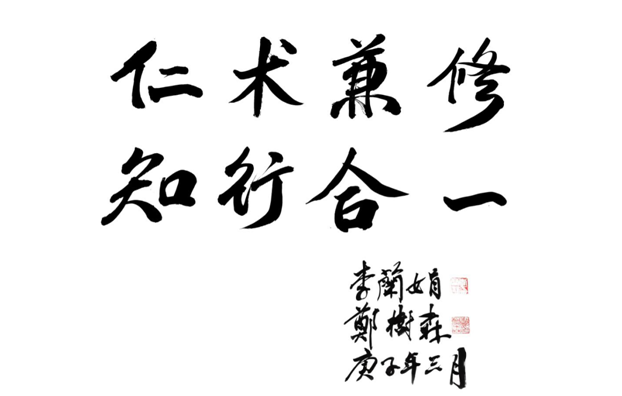 仁术兼修
知行合一
李蘭娟
鄭樹森
庚子年三月